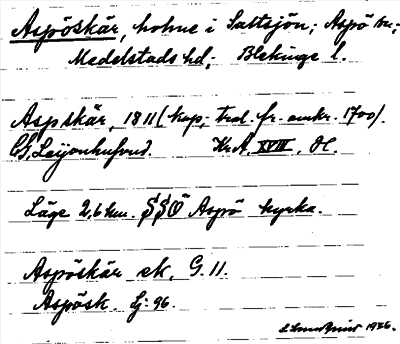 Aspöskär, holme i Saltsjön; Aspö sn;
Medelstads hd; Blekinge l.
Aspskär, 1811 (kop; trol. fr. omkr. 1700).
CG, Leijonhufvud. Kr.A. XVIII, Öl.
Läge 2,6 km. SSÖ Aspö kyrka.
Aspöskär ek, G. 11.
Aspösk. Sj: 96.
1936.